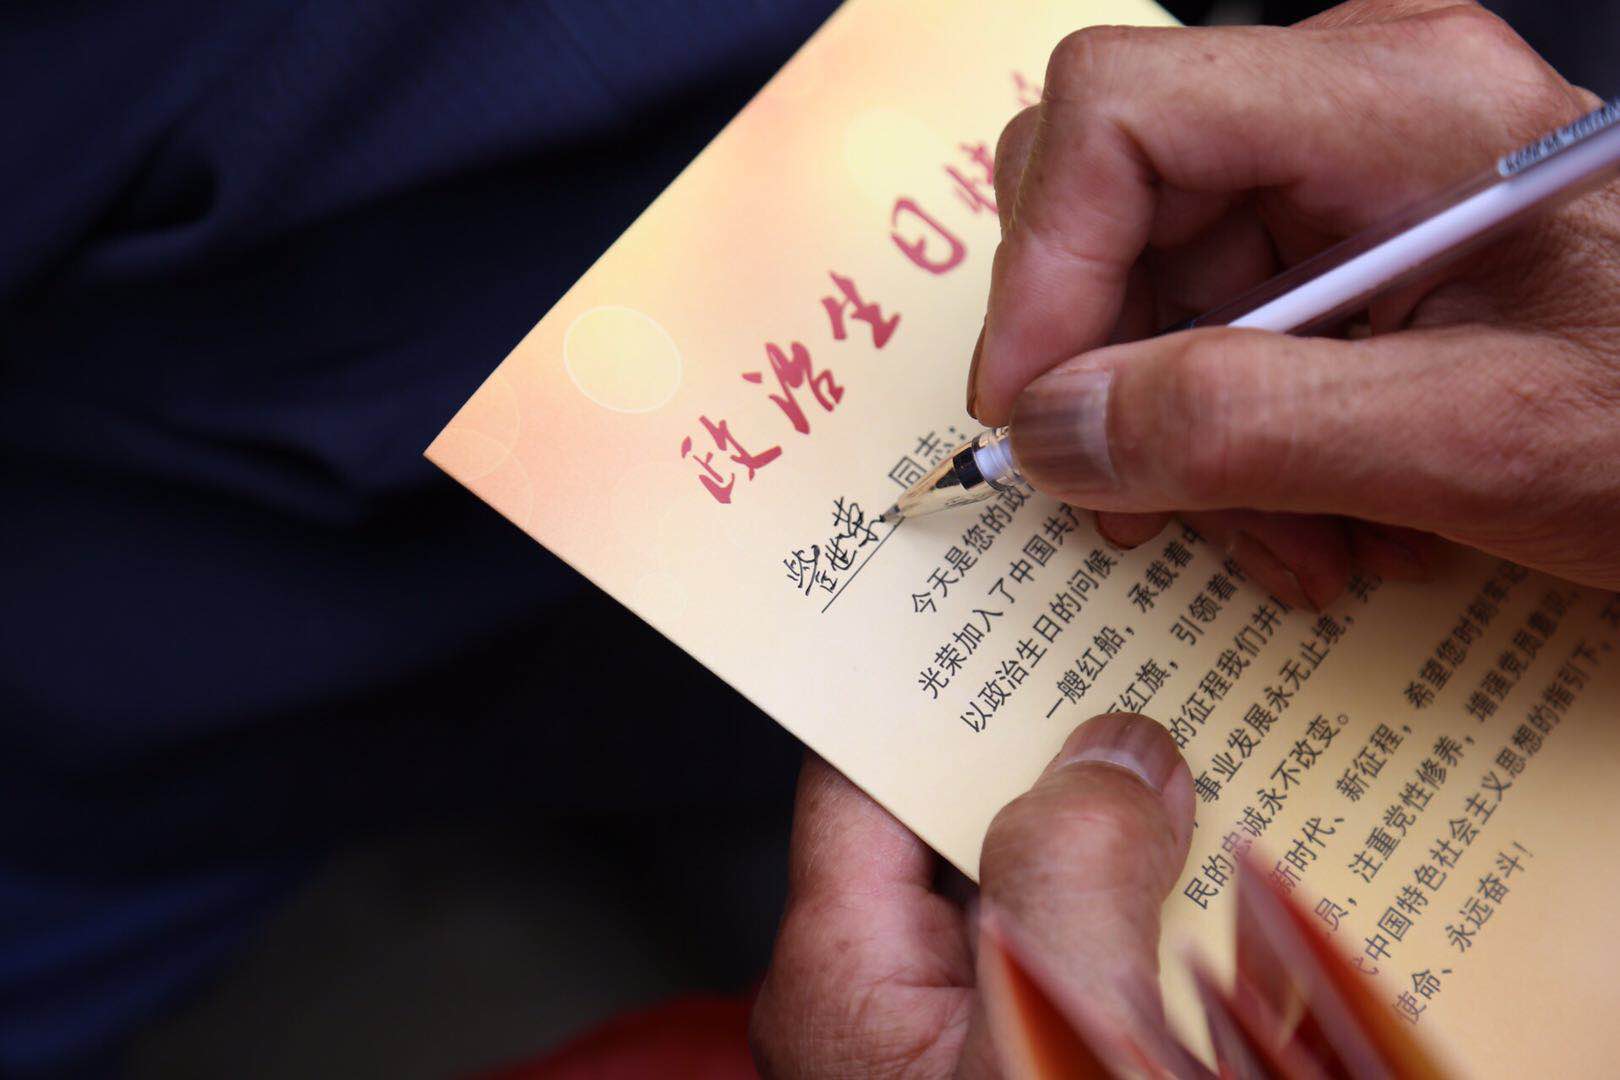 政治生日快
世荣 同志：
今天是您的政
光荣加入了中国共产
以政治生日的问候
一艘红船，承载着中
红旗，引领着
的征程我们并
事业发展永无止境，共
民的忠诚永不改变。
新时代、新征程，希望您时刻牢记
员，注重党性修养，增强党员意识，
代中国特色社会主义思想的指引下，不
使命、永远奋斗！